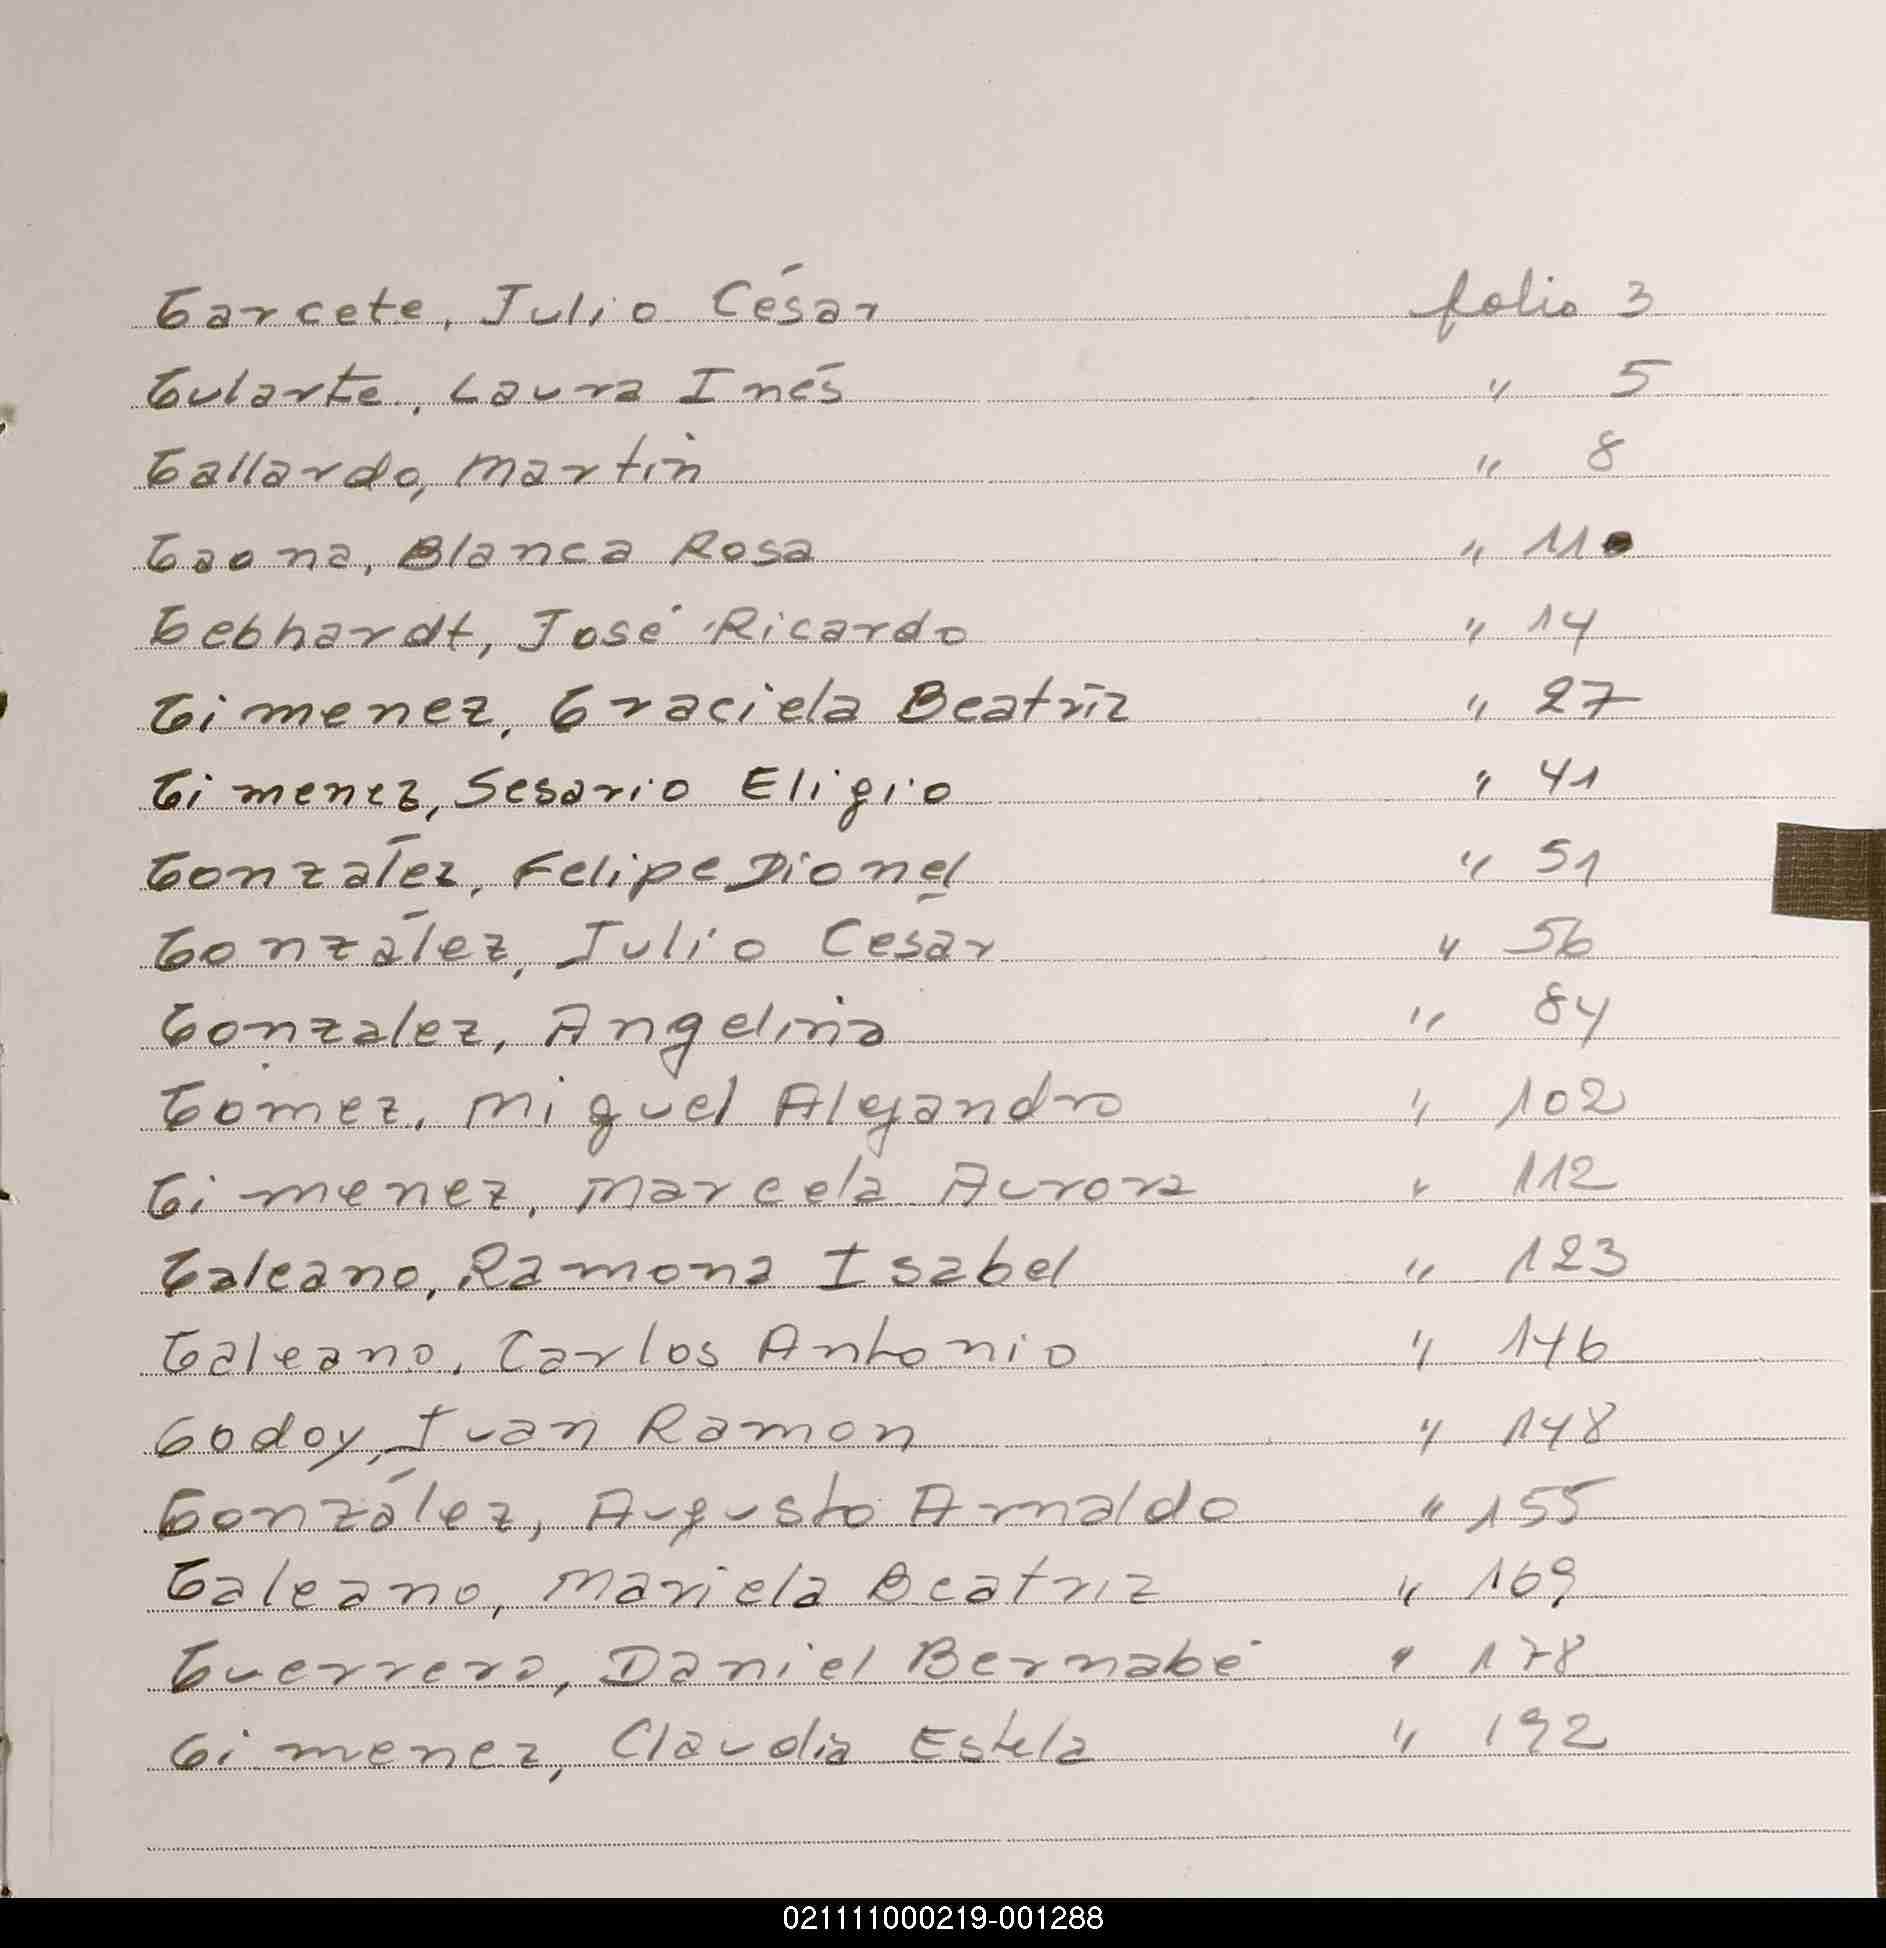 Garcete, Julio César folio 3
Gularte, Laura Inés " 5
Gallardo, Martin " 8
Gaona, Blanca Rosa " 11
Gebhardt, José Ricardo " 14
Gimenez, Graciela Beatríz " 27
Gimenez, Sesario Eligio " 41
González, Felipe Dionel " 51
González, Julio César " 56
Gonzalez, Angelina " 84
Gómez, Miguel Alejandro " 102
Gimenez, Marcela Aurora " 112
Galeano, Ramona Isabel " 123
Galeano, Carlos Antonio " 146
Godoy, Juan Ramon " 148
González, Augusto Arnaldo " 155
Galeano, Mariela Beatriz " 169
Guerrero, Daniel Bernabé " 178
Gimenez, Claudia Estela " 192
021111000219-001288